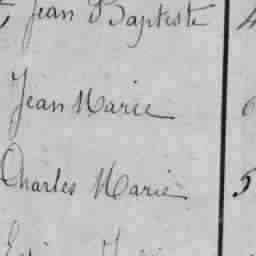 Jean Baptiste
Jean Marie
Charles Marie 5